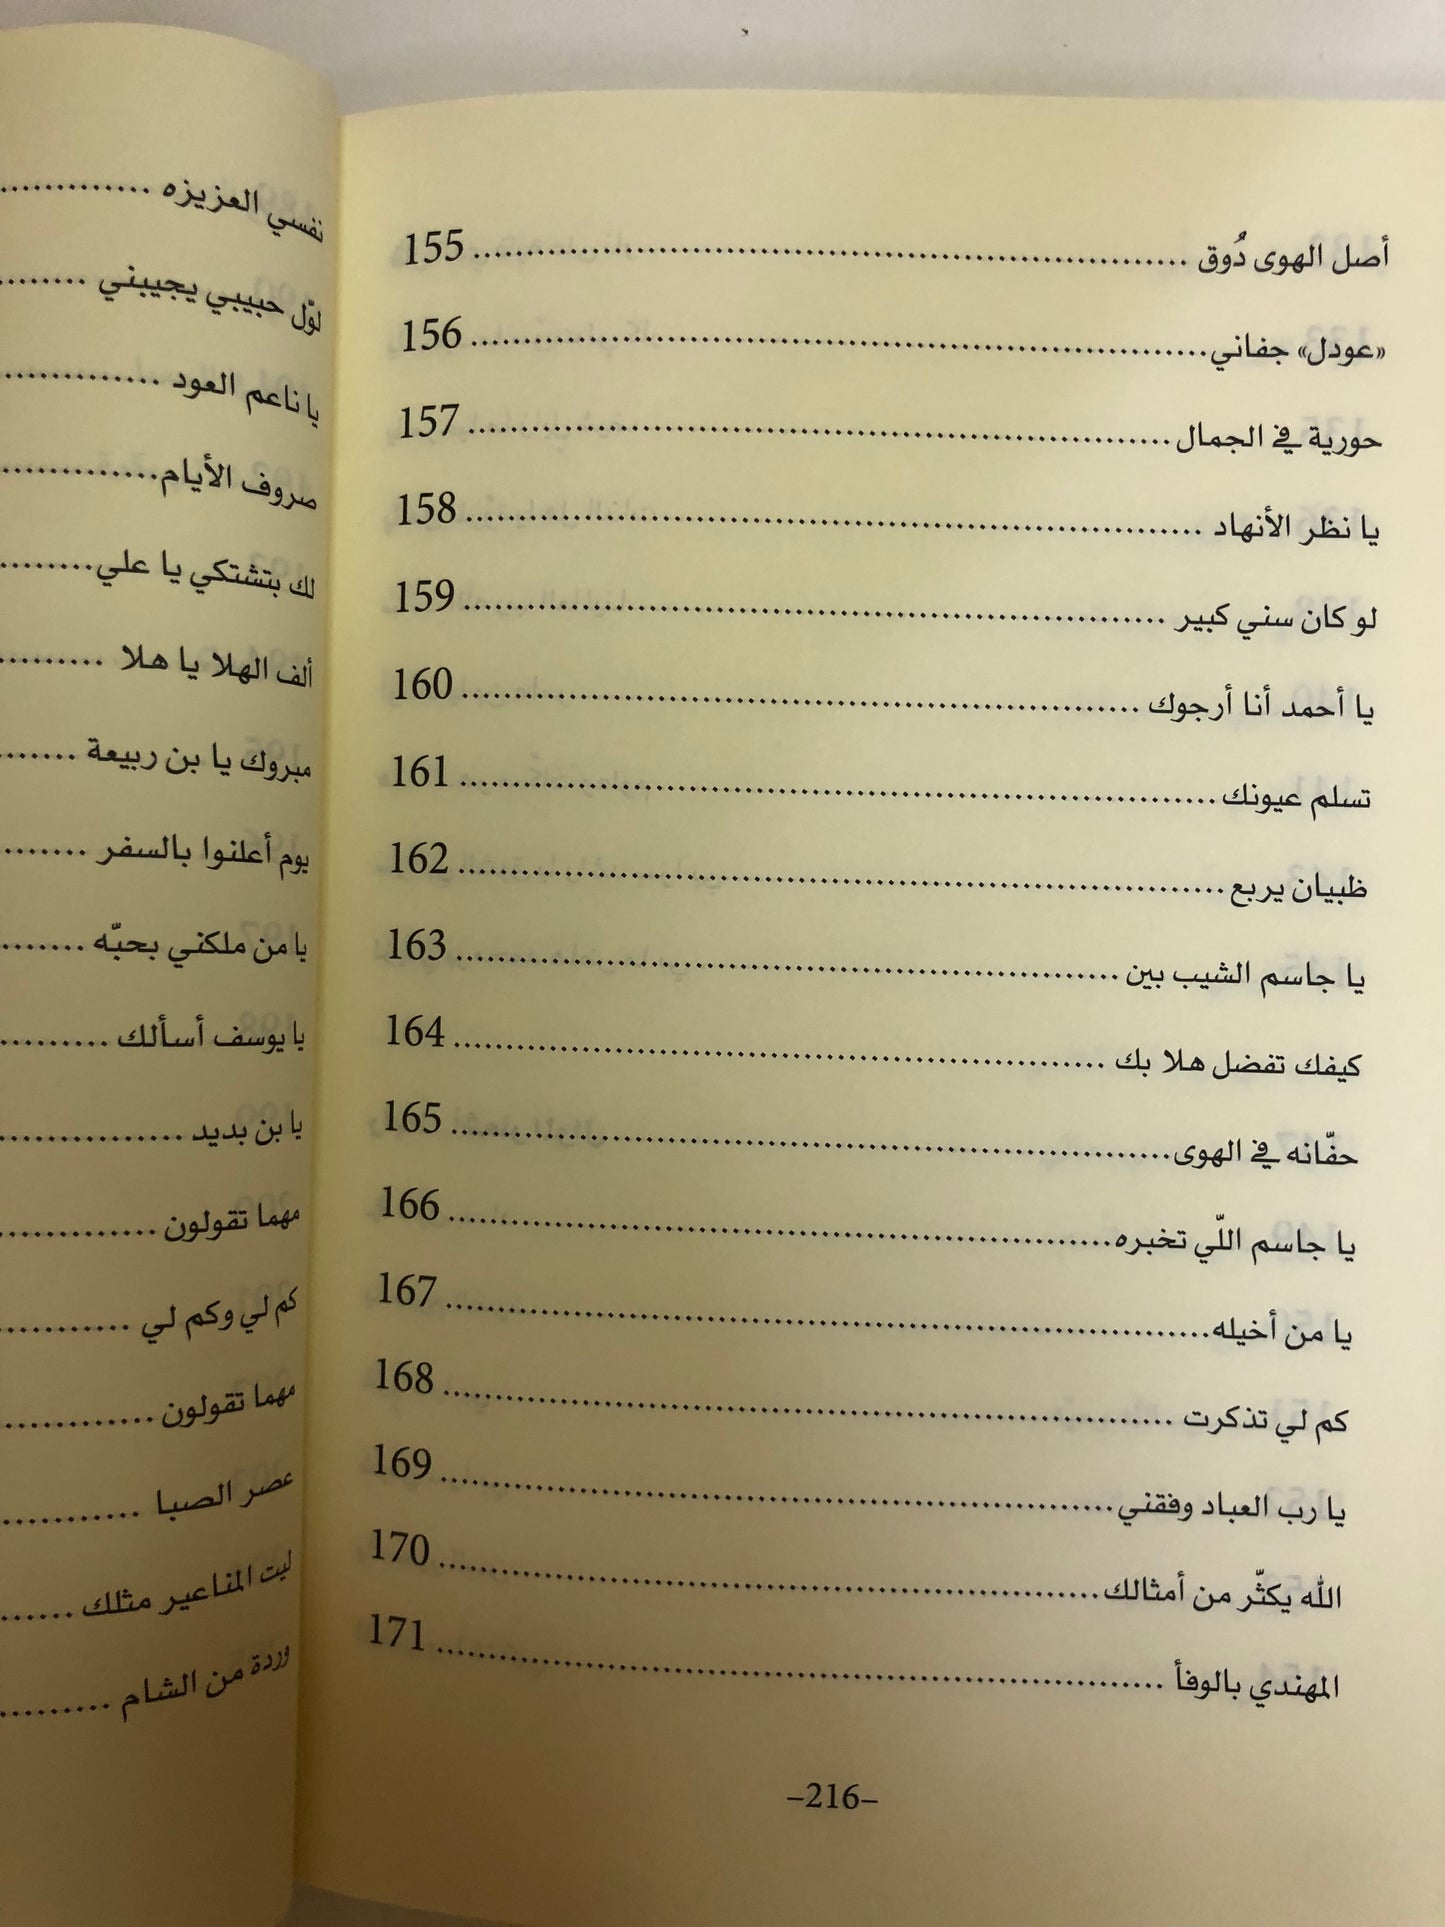 أصل الهوى دُوق ........ 155
«عودل» جفاني ........ 156
حورية في الجمال ........ 157
يا نظر الأنهاد ........ 158
لو كان سني كبير ........ 159
يا أحمد أنا أرجوك ........ 160
تسلم عيونك ........ 161
ظبيان يربع ........ 162
يا جاسم الشيب بين ........ 163
كيفك تفضل هلا بك ........ 164
حفّانه في الهوى ........ 165
يا جاسم اللّي تخبره ........ 166
يا من أخيله ........ 167
كم لي تذكرت ........ 168
يا رب العباد وفقني ........ 169
الله يكثّر من أمثالك ........ 170
المهندي بالوفأ ........ 171
–216–
نفسي العزيزه ........
لوّل حبيبي يجيبني ........
يا ناعم العود ........
صروف الأيام ........
لك بتشتكي يا علي ........
ألف الهلا يا هلا ........
مبروك يا بن ربيعة ........
يوم أعلنوا بالسفر ........
يا من ملكني بحبّه ........
يا يوسف أسألك ........
يا بن بديد ........
مهما تقولون ........
كم لي وكم لي ........
مهما تقولون ........
عصر الصبا ........
ليت المناعير مثلك ........
وردة من الشام ........